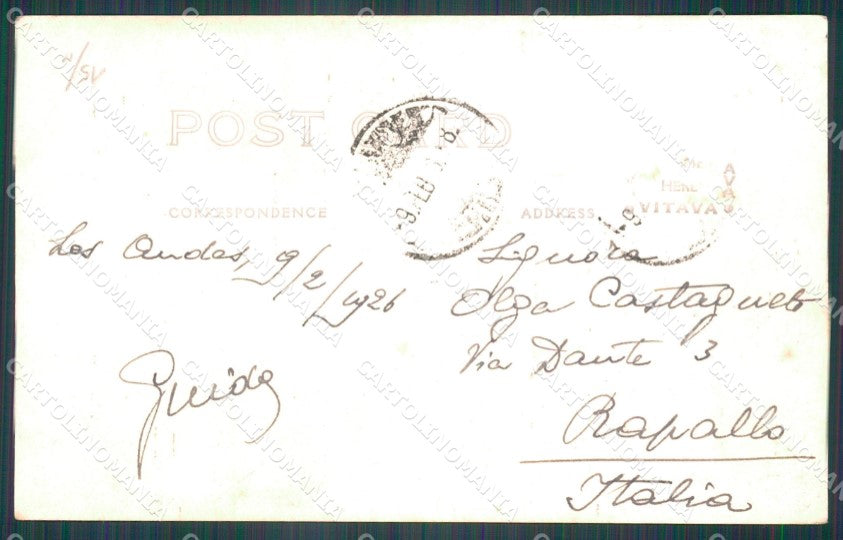 POST CARD
CORRESPONDENCE
ADDRESS
HERE
VITAVA
Los Andes, 9/2/1926
Guido
Signora
Olga Castagneto
Via Dante 3
Rapallo
Italia
CARTOLINOMANIA